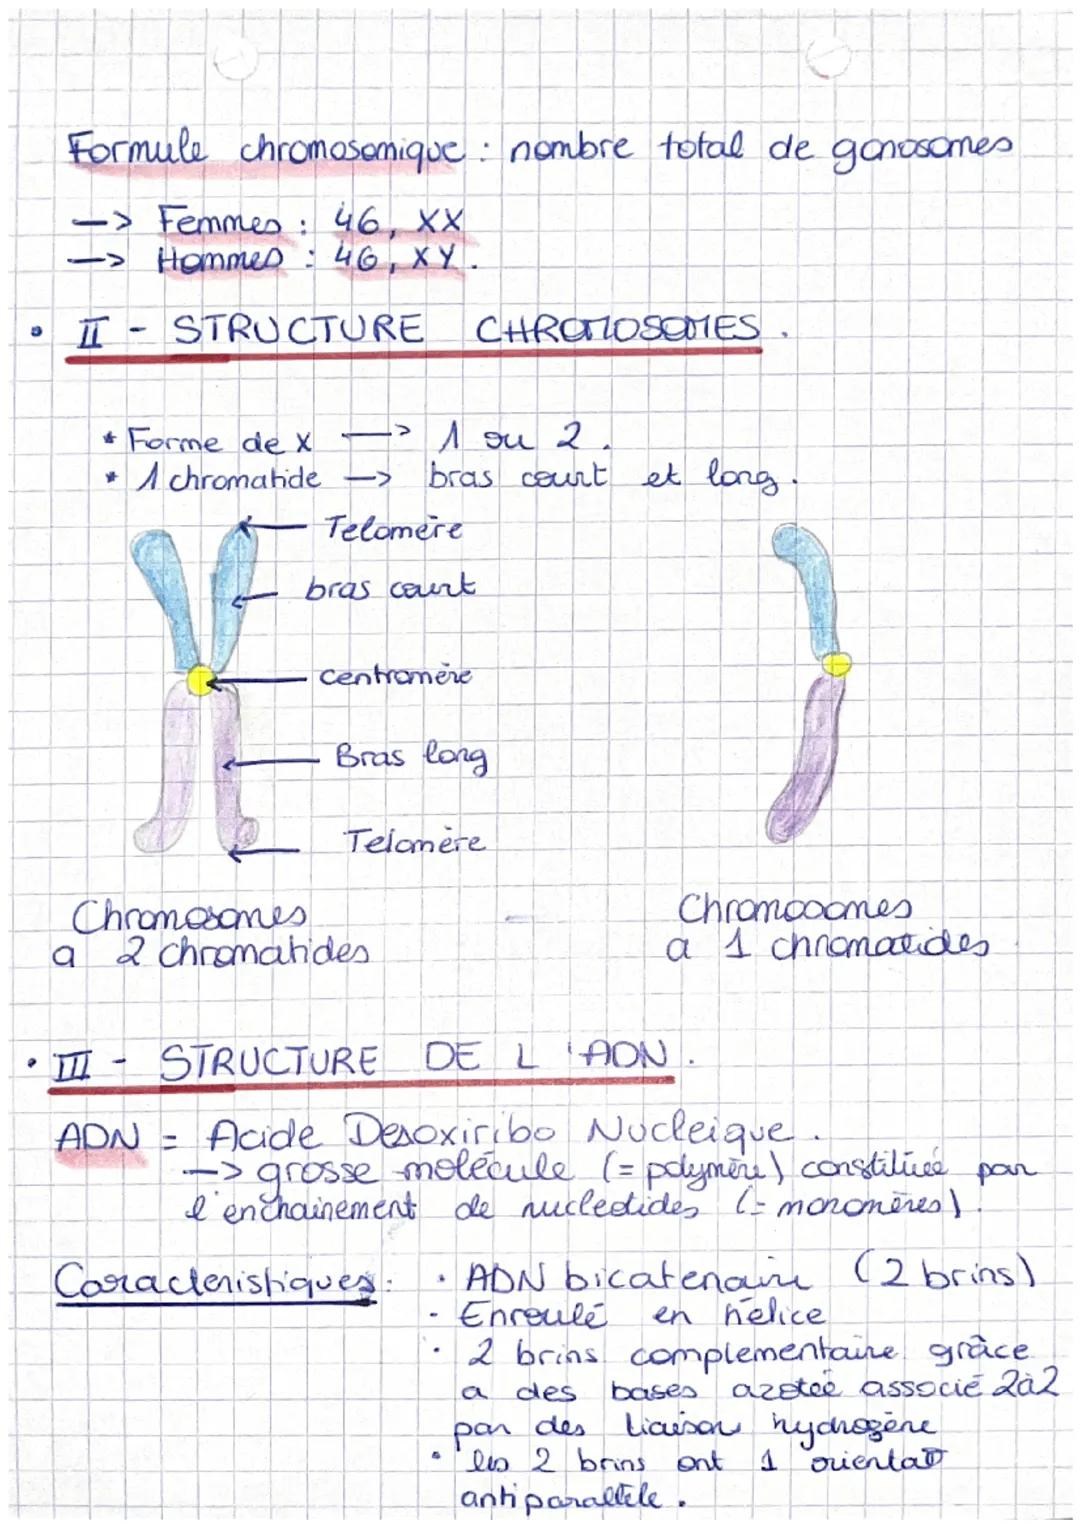 Formule chromosomique : nombre total de gonosomes
--> Femmes : 46, XX
--> Hommes : 46, XY.
• II - STRUCTURE CHROMOSOMES.
* Forme de X --> 1 ou 2.
* 1 chromatide --> bras court et long.
Telomère
bras court
centromère
Bras long
Telomère
Chromosomes
a 2 chromatides
Chromosomes
a 1 chromatides
• III - STRUCTURE DE L'ADN.
ADN = Acide Desoxiribo Nucleique.
--> grosse molécule (= polymère) constituée par
l'enchainement de nucleotides (= monomères).
Caracteristiques : • ADN bicatenaire (2 brins)
- Enroulé en hélice
• 2 brins complementaire grâce
a des bases azotée associé 2à2
par des liaison hydrogène
• les 2 brins ont 1 orientat°
antiparallele.